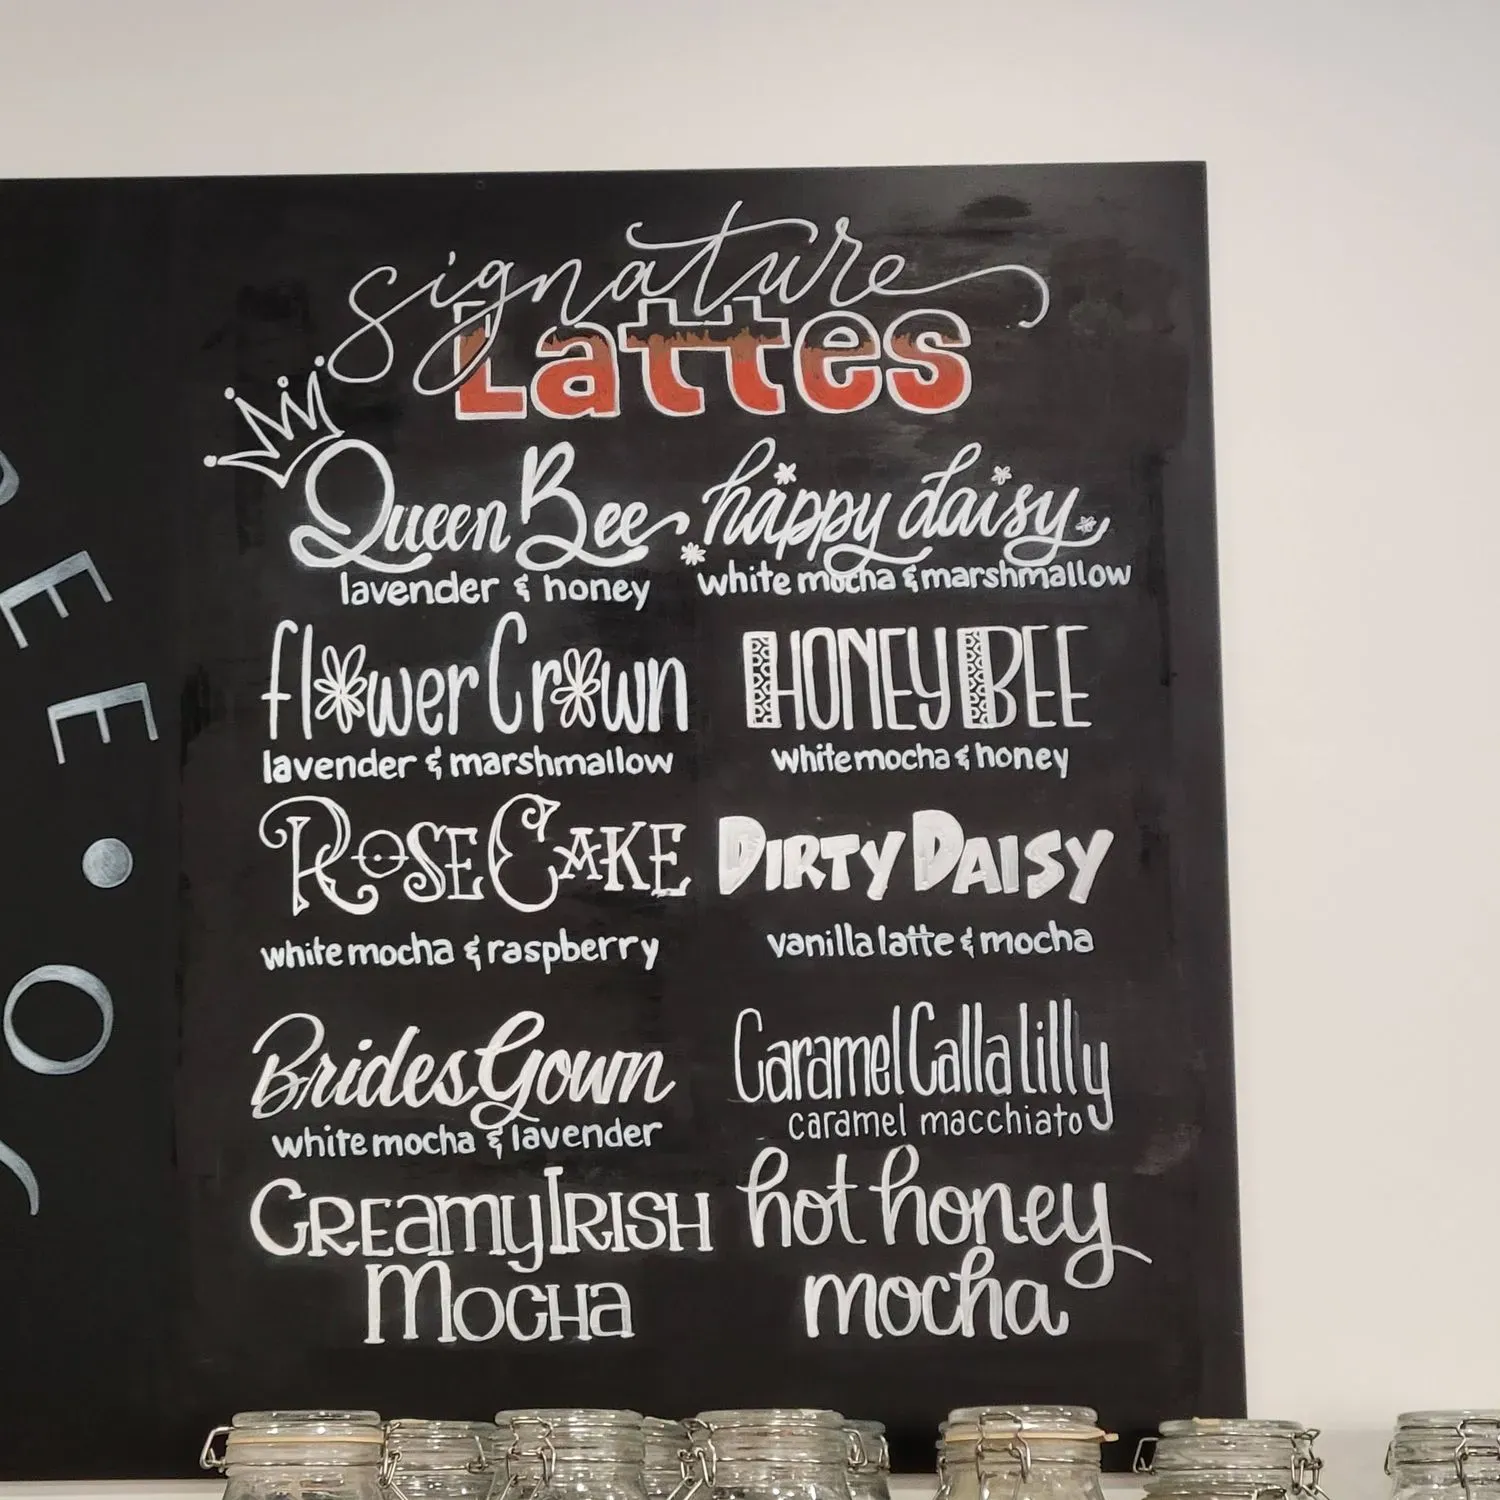 signature
Lattes
Queen Bee
lavender & honey
happy daisy
white mocha & marshmallow
flower Crown
lavender & marshmallow
HONEY BEE
white mocha & honey
ROSE CAKE
white mocha & raspberry
DIRTY DAISY
vanilla latte & mocha
Brides Gown
white mocha & lavender
Caramel Calla lilly
caramel macchiato
CREamy IRISH
MOCHa
hot honey
mocha